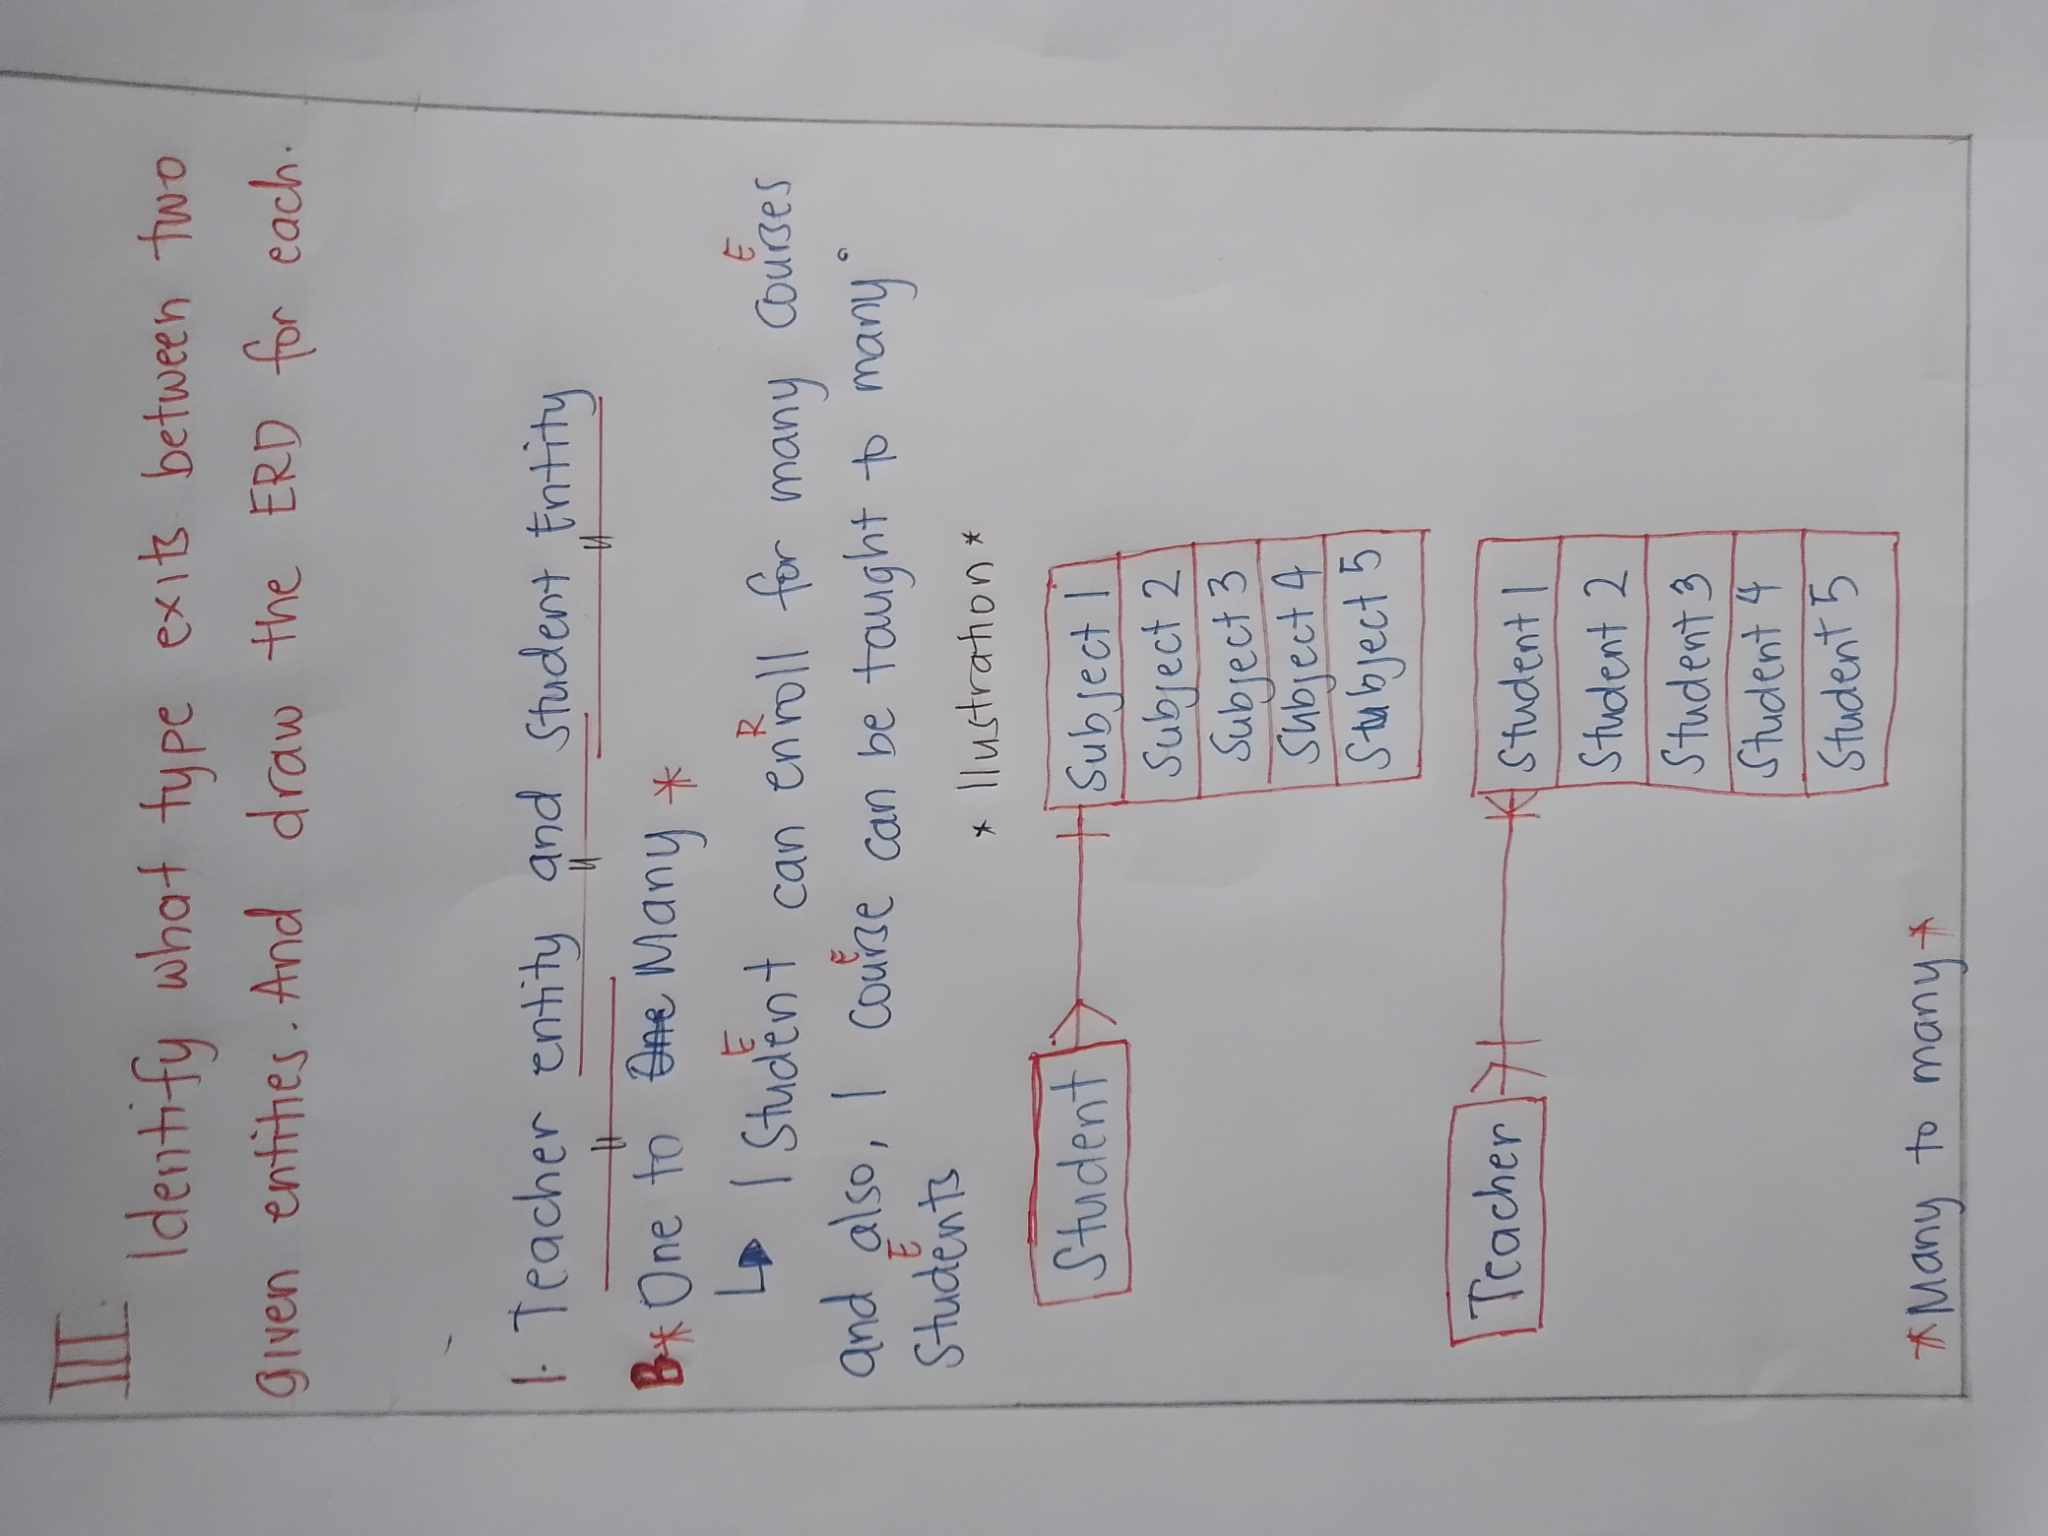 III.
Identify what type exits between two
given entities. And draw the ERD for each.
1. Teacher entity and Student Entity
B* One to One Many *
E R E
↳ 1 Student can enroll for many courses
E
and also, 1 course can be taught to many.
E
Students
* Illustration *
Student
Subject 1
Subject 2
Subject 3
Subject 4
Subject 5
Teacher
Student 1
Student 2
Student 3
Student 4
Student 5
*Many to many*